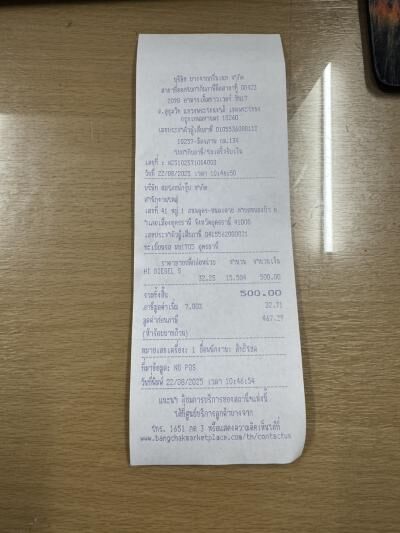 บริษัท บางจากกรีนเนท จำกัด
สาขาที่ออกใบกำกับภาษีคือสาขาที่ 00422
2098 อาคารเอ็มทาวเวอร์ ชั้น7
ถ.สุขุมวิท แขวงพระโขนงใต้ เขตพระโขนง
กรุงเทพมหานคร 10260
เลขประจำตัวผู้เสียภาษี 0105536080112
ใบกำกับภาษี/ใบเสร็จรับเงิน
วันที่ 22/08/2025 เวลา 10:46:50
เลขที่ 41 หมู่ 1
เลขประจำตัวผู้เสียภาษี 0415562000021
ทะเบียนรถ อุดรธานี
ราคาขายปลีกต่อหน่วย จำนวน จำนวนเงิน
HI DIESEL S
32.25 15.504 500.00
รวมทั้งสิ้น 500.00
ภาษีมูลค่าเพิ่ม 7.00% 32.71
มูลค่าก่อนภาษี 467.29
(ห้าร้อยบาทถ้วน)
หมายเลขเครื่อง: 1 ชื่อพนักงาน:
ที่มาข้อมูล: NO POS
วันที่พิมพ์ 22/08/2025 เวลา 10:46:54
แนะนำ ติชมการบริการของสถานีฯแห่งนี้
ได้ที่ศูนย์บริการลูกค้าบางจาก
โทร. 1651 กด 3 หรือแสดงความคิดเห็นได้ที่
www.bangchakmarketplace.com/th/contactus